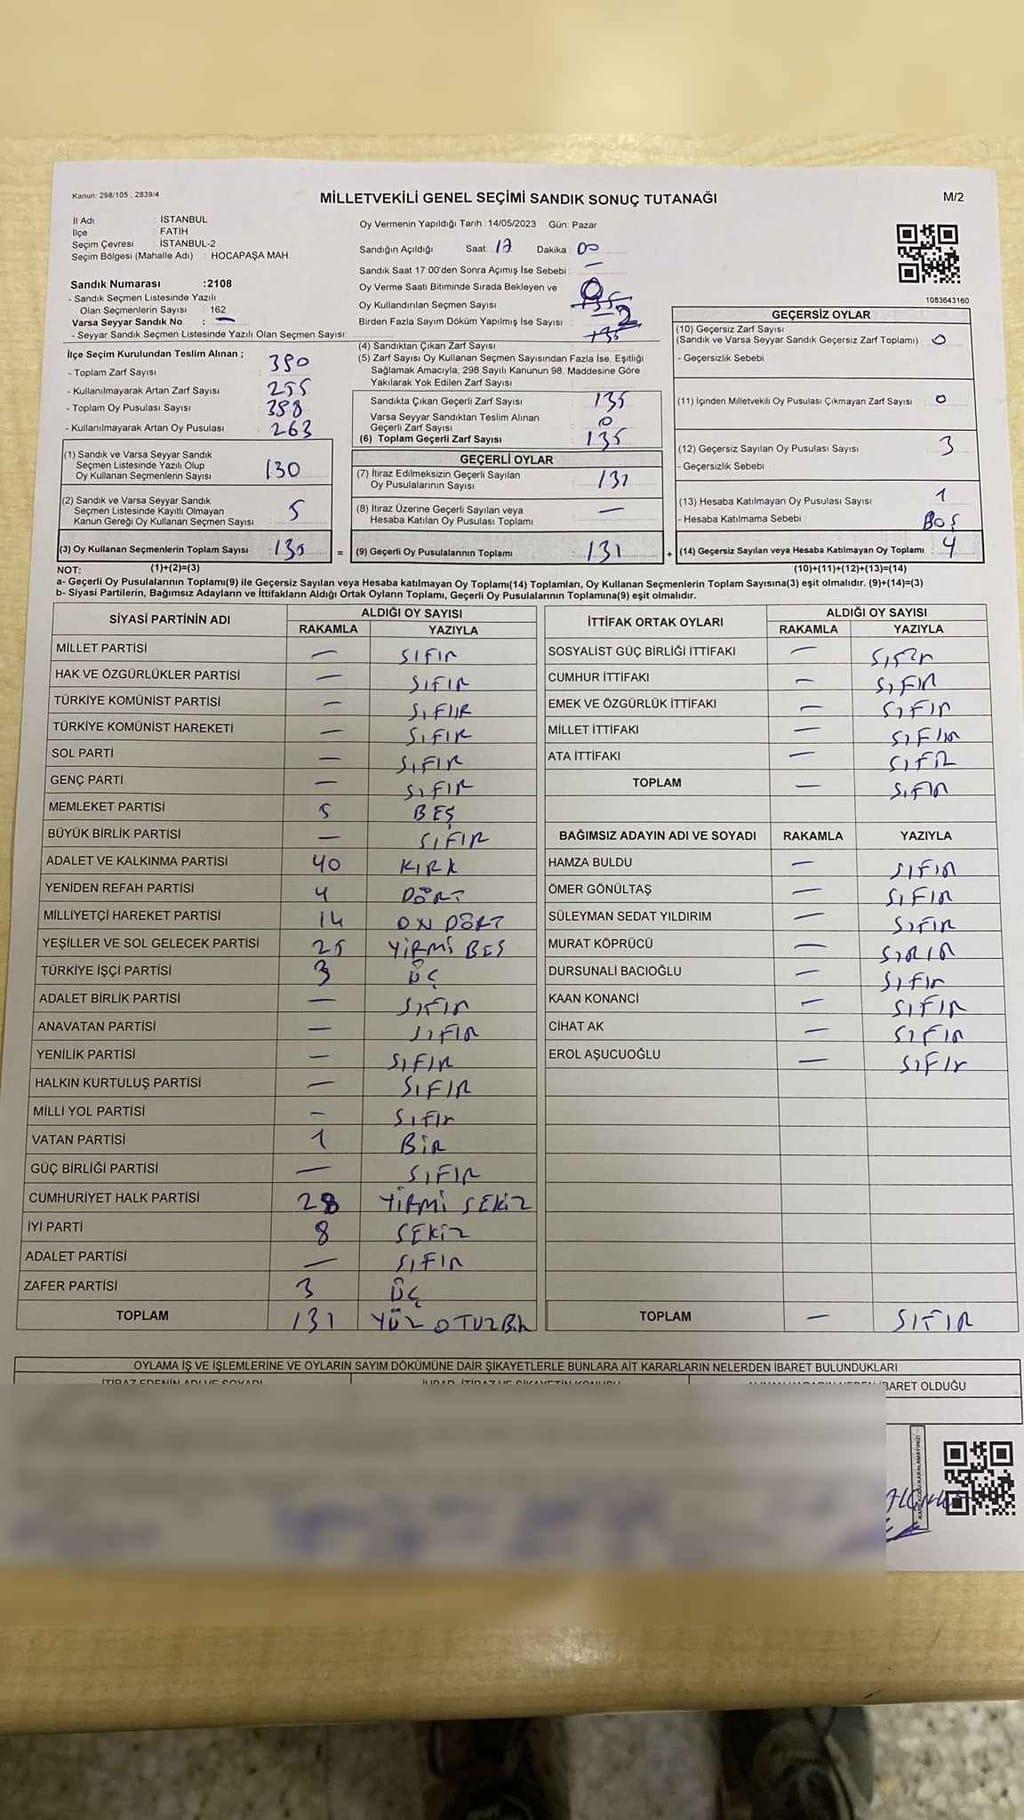 Kanun: 298/105 . 2839/4
MİLLETVEKİLİ GENEL SEÇİMİ SANDIK SONUÇ TUTANAĞI
M/2
İl Adı : İSTANBUL
İlçe : FATİH
Seçim Çevresi : İSTANBUL-2
Seçim Bölgesi (Mahalle Adı) : HOCAPAŞA MAH.
Sandık Numarası : 2108
- Sandık Seçmen Listesinde Yazılı
Olan Seçmenlerin Sayısı : 162
Varsa Seyyar Sandık No : —
- Seyyar Sandık Seçmen Listesinde Yazılı Olan Seçmen Sayısı:
Oy Vermenin Yapıldığı Tarih : 14/05/2023 Gün: Pazar
Sandığın Açıldığı Saat: 17 Dakika : 00
Sandık Saat 17 00'den Sonra Açımış İse Sebebi : —
Oy Verme Saati Bitiminde Sırada Bekleyen ve
Oy Kullandırılan Seçmen Sayısı 0
Birden Fazla Sayım Döküm Yapılmış İse Sayısı : 2
1083643160
İlçe Seçim Kurulundan Teslim Alınan ;
- Toplam Zarf Sayısı : 390
- Kullanılmayarak Artan Zarf Sayısı : 255
- Toplam Oy Pusulası Sayısı : 398
- Kullanılmayarak Artan Oy Pusulası : 263
(1) Sandık ve Varsa Seyyar Sandık
Seçmen Listesinde Yazılı Olup
Oy Kullanan Seçmenlerin Sayısı : 130
(2) Sandık ve Varsa Seyyar Sandık
Seçmen Listesinde Kayıtlı Olmayan
Kanun Gereği Oy Kullanan Seçmen Sayısı : 5
(3) Oy Kullanan Seçmenlerin Toplam Sayısı : 135
(4) Sandıktan Çıkan Zarf Sayısı : 135
(5) Zarf Sayısı Oy Kullanan Seçmen Sayısından Fazla İse, Eşitliği
Sağlamak Amacıyla, 298 Sayılı Kanunun 98. Maddesine Göre
Yakılarak Yok Edilen Zarf Sayısı :
Sandıkta Çıkan Geçerli Zarf Sayısı : 135
Varsa Seyyar Sandıktan Teslim Alınan
Geçerli Zarf Sayısı : 0
(6) Toplam Geçerli Zarf Sayısı : 135
GEÇERLİ OYLAR
(7) İtiraz Edilmeksizin Geçerli Sayılan
Oy Pusulalarının Sayısı : 131
(8) İtiraz Üzerine Geçerli Sayılan veya
Hesaba Katılan Oy Pusulası Toplamı : —
= (9) Geçerli Oy Pusulalarının Toplamı : 131
GEÇERSİZ OYLAR
(10) Geçersiz Zarf Sayısı
(Sandık ve Varsa Seyyar Sandık Geçersiz Zarf Toplamı) : 0
- Geçersizlik Sebebi
(11) İçinden Milletvekili Oy Pusulası Çıkmayan Zarf Sayısı : 0
(12) Geçersiz Sayılan Oy Pusulası Sayısı : 3
- Geçersizlik Sebebi
(13) Hesaba Katılmayan Oy Pusulası Sayısı : 1
- Hesaba Katılmama Sebebi : BOŞ
+ (14) Geçersiz Sayılan veya Hesaba Katılmayan Oy Toplamı : 4
NOT: (1)+(2)=(3)
(10)+(11)+(12)+(13)=(14)
a- Geçerli Oy Pusulalarının Toplamı(9) ile Geçersiz Sayılan veya Hesaba katılmayan Oy Toplamı(14) Toplamları, Oy Kullanan Seçmenlerin Toplam Sayısına(3) eşit olmalıdır. (9)+(14)=(3)
b- Siyasi Partilerin, Bağımsız Adayların ve İttifakların Aldığı Ortak Oyların Toplamı, Geçerli Oy Pusulalarının Toplamına(9) eşit olmalıdır.
SİYASİ PARTİNİN ADI ALDIĞI OY SAYISI
RAKAMLA YAZIYLA
MİLLET PARTİSİ — SIFIR
HAK VE ÖZGÜRLÜKLER PARTİSİ — SIFIR
TÜRKİYE KOMÜNİST PARTİSİ — SIFIR
TÜRKİYE KOMÜNİST HAREKETİ — SIFIR
SOL PARTİ — SIFIR
GENÇ PARTİ — SIFIR
MEMLEKET PARTİSİ 5 BEŞ
BÜYÜK BİRLİK PARTİSİ — SIFIR
ADALET VE KALKINMA PARTİSİ 40 KIRK
YENİDEN REFAH PARTİSİ 4 DÖRT
MİLLİYETÇİ HAREKET PARTİSİ 14 ON DÖRT
YEŞİLLER VE SOL GELECEK PARTİSİ 25 YİRMİ BEŞ
TÜRKİYE İŞÇİ PARTİSİ 3 ÜÇ
ADALET BİRLİK PARTİSİ — SIFIR
ANAVATAN PARTİSİ — SIFIR
YENİLİK PARTİSİ — SIFIR
HALKIN KURTULUŞ PARTİSİ — SIFIR
MİLLİ YOL PARTİSİ — SIFIR
VATAN PARTİSİ 1 BİR
GÜÇ BİRLİĞİ PARTİSİ — SIFIR
CUMHURİYET HALK PARTİSİ 28 YİRMİ SEKİZ
İYİ PARTİ 8 SEKİZ
ADALET PARTİSİ — SIFIR
ZAFER PARTİSİ 3 ÜÇ
TOPLAM 131 YÜZ OTUZBİR
İTTİFAK ORTAK OYLARI ALDIĞI OY SAYISI
RAKAMLA YAZIYLA
SOSYALİST GÜÇ BİRLİĞİ İTTİFAKI — SIFIR
CUMHUR İTTİFAKI — SIFIR
EMEK VE ÖZGÜRLÜK İTTİFAKI — SIFIR
MİLLET İTTİFAKI — SIFIR
ATA İTTİFAKI — SIFIR
TOPLAM — SIFIR
BAĞIMSIZ ADAYIN ADI VE SOYADI RAKAMLA YAZIYLA
HAMZA BULDU — SIFIR
ÖMER GÖNÜLTAŞ — SIFIR
SÜLEYMAN SEDAT YILDIRIM — SIFIR
MURAT KÖPRÜCÜ — SIFIR
DURSUNALİ BACIOĞLU — SIFIR
KAAN KONANCİ — SIFIR
CİHAT AK — SIFIR
EROL AŞUCUOĞLU — SIFIR
TOPLAM — SIFIR
OYLAMA İŞ VE İŞLEMLERİNE VE OYLARIN SAYIM DÖKÜMÜNE DAİR ŞİKAYETLERLE BUNLARA AİT KARARLARIN NELERDEN İBARET BULUNDUKLARI
İTİRAZ EDENİN ADI VE SOYADI
İBARET OLDUĞU